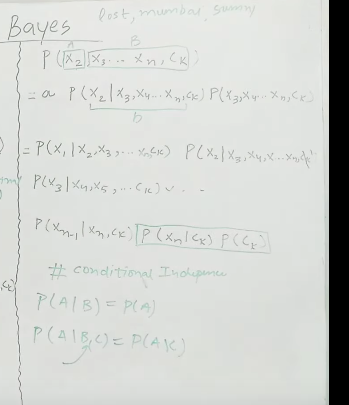 Bayes
Post, mumbai, sunny
A B
P(x₂ | x₃... xₙ, Cₖ)
= a P(x₂ | x₃, x₄... xₙ, Cₖ) P(x₃, x₄... xₙ, Cₖ)
b
= P(x₁ | x₂, x₃, ... xₙ, Cₖ) P(x₂ | x₃, x₄, x... xₙ, Cₖ)
P(x₃ | x₄, x₅, ... Cₖ) ✓ . -
P(xₙ₋₁ | xₙ, Cₖ) P(xₙ | Cₖ) P(Cₖ)
# conditional Indepence
P(A | B) = P(A)
Cₖ)
P(A | B, C) = P(A | C)